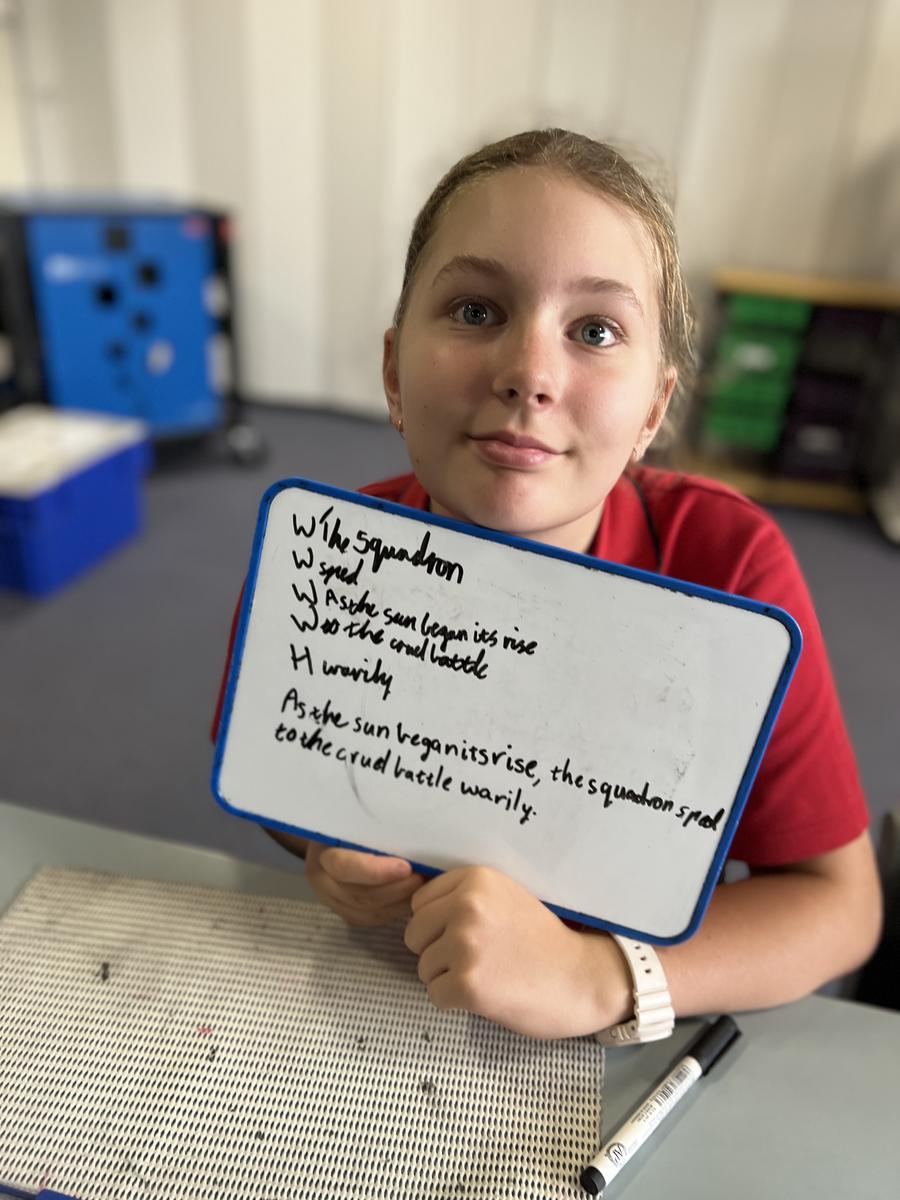 W The squadron
W sped
W As the sun began its rise
W to the cruel battle
H warily
As the sun began its rise, the squadron sped
to the cruel battle warily.